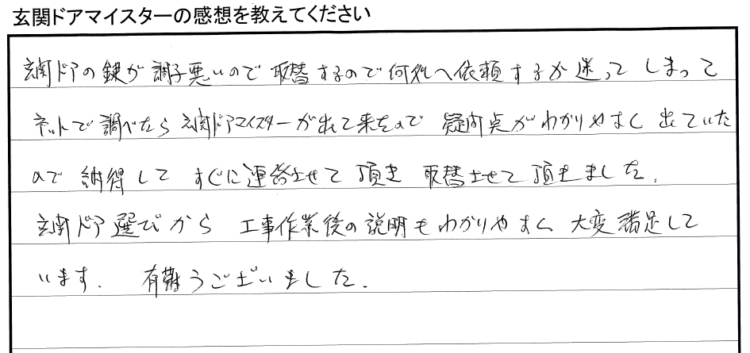 玄関ドアマイスターの感想を教えてください
玄関ドアの鍵が調子悪いので取替するので何処へ依頼するか迷ってしまって
ネットで調べたら玄関ドアマイスターが出て来たので疑問点がわかりやすく出ていた
ので納得してすぐに連絡させて頂き取替させて頂きました。
玄関ドア選びから工事作業後の説明もわかりやすく大変満足して
います。有難うございました。